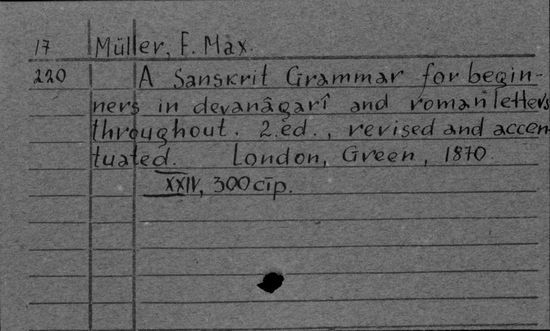 17 Müller, F. Max.
220 A Sanskrit Grammar for begin-
ners in devanâgarî and roman letters
throughout. 2.ed., revised and accen
tuated. London, Green, 1870.
XXIV, 300 c̄īp.